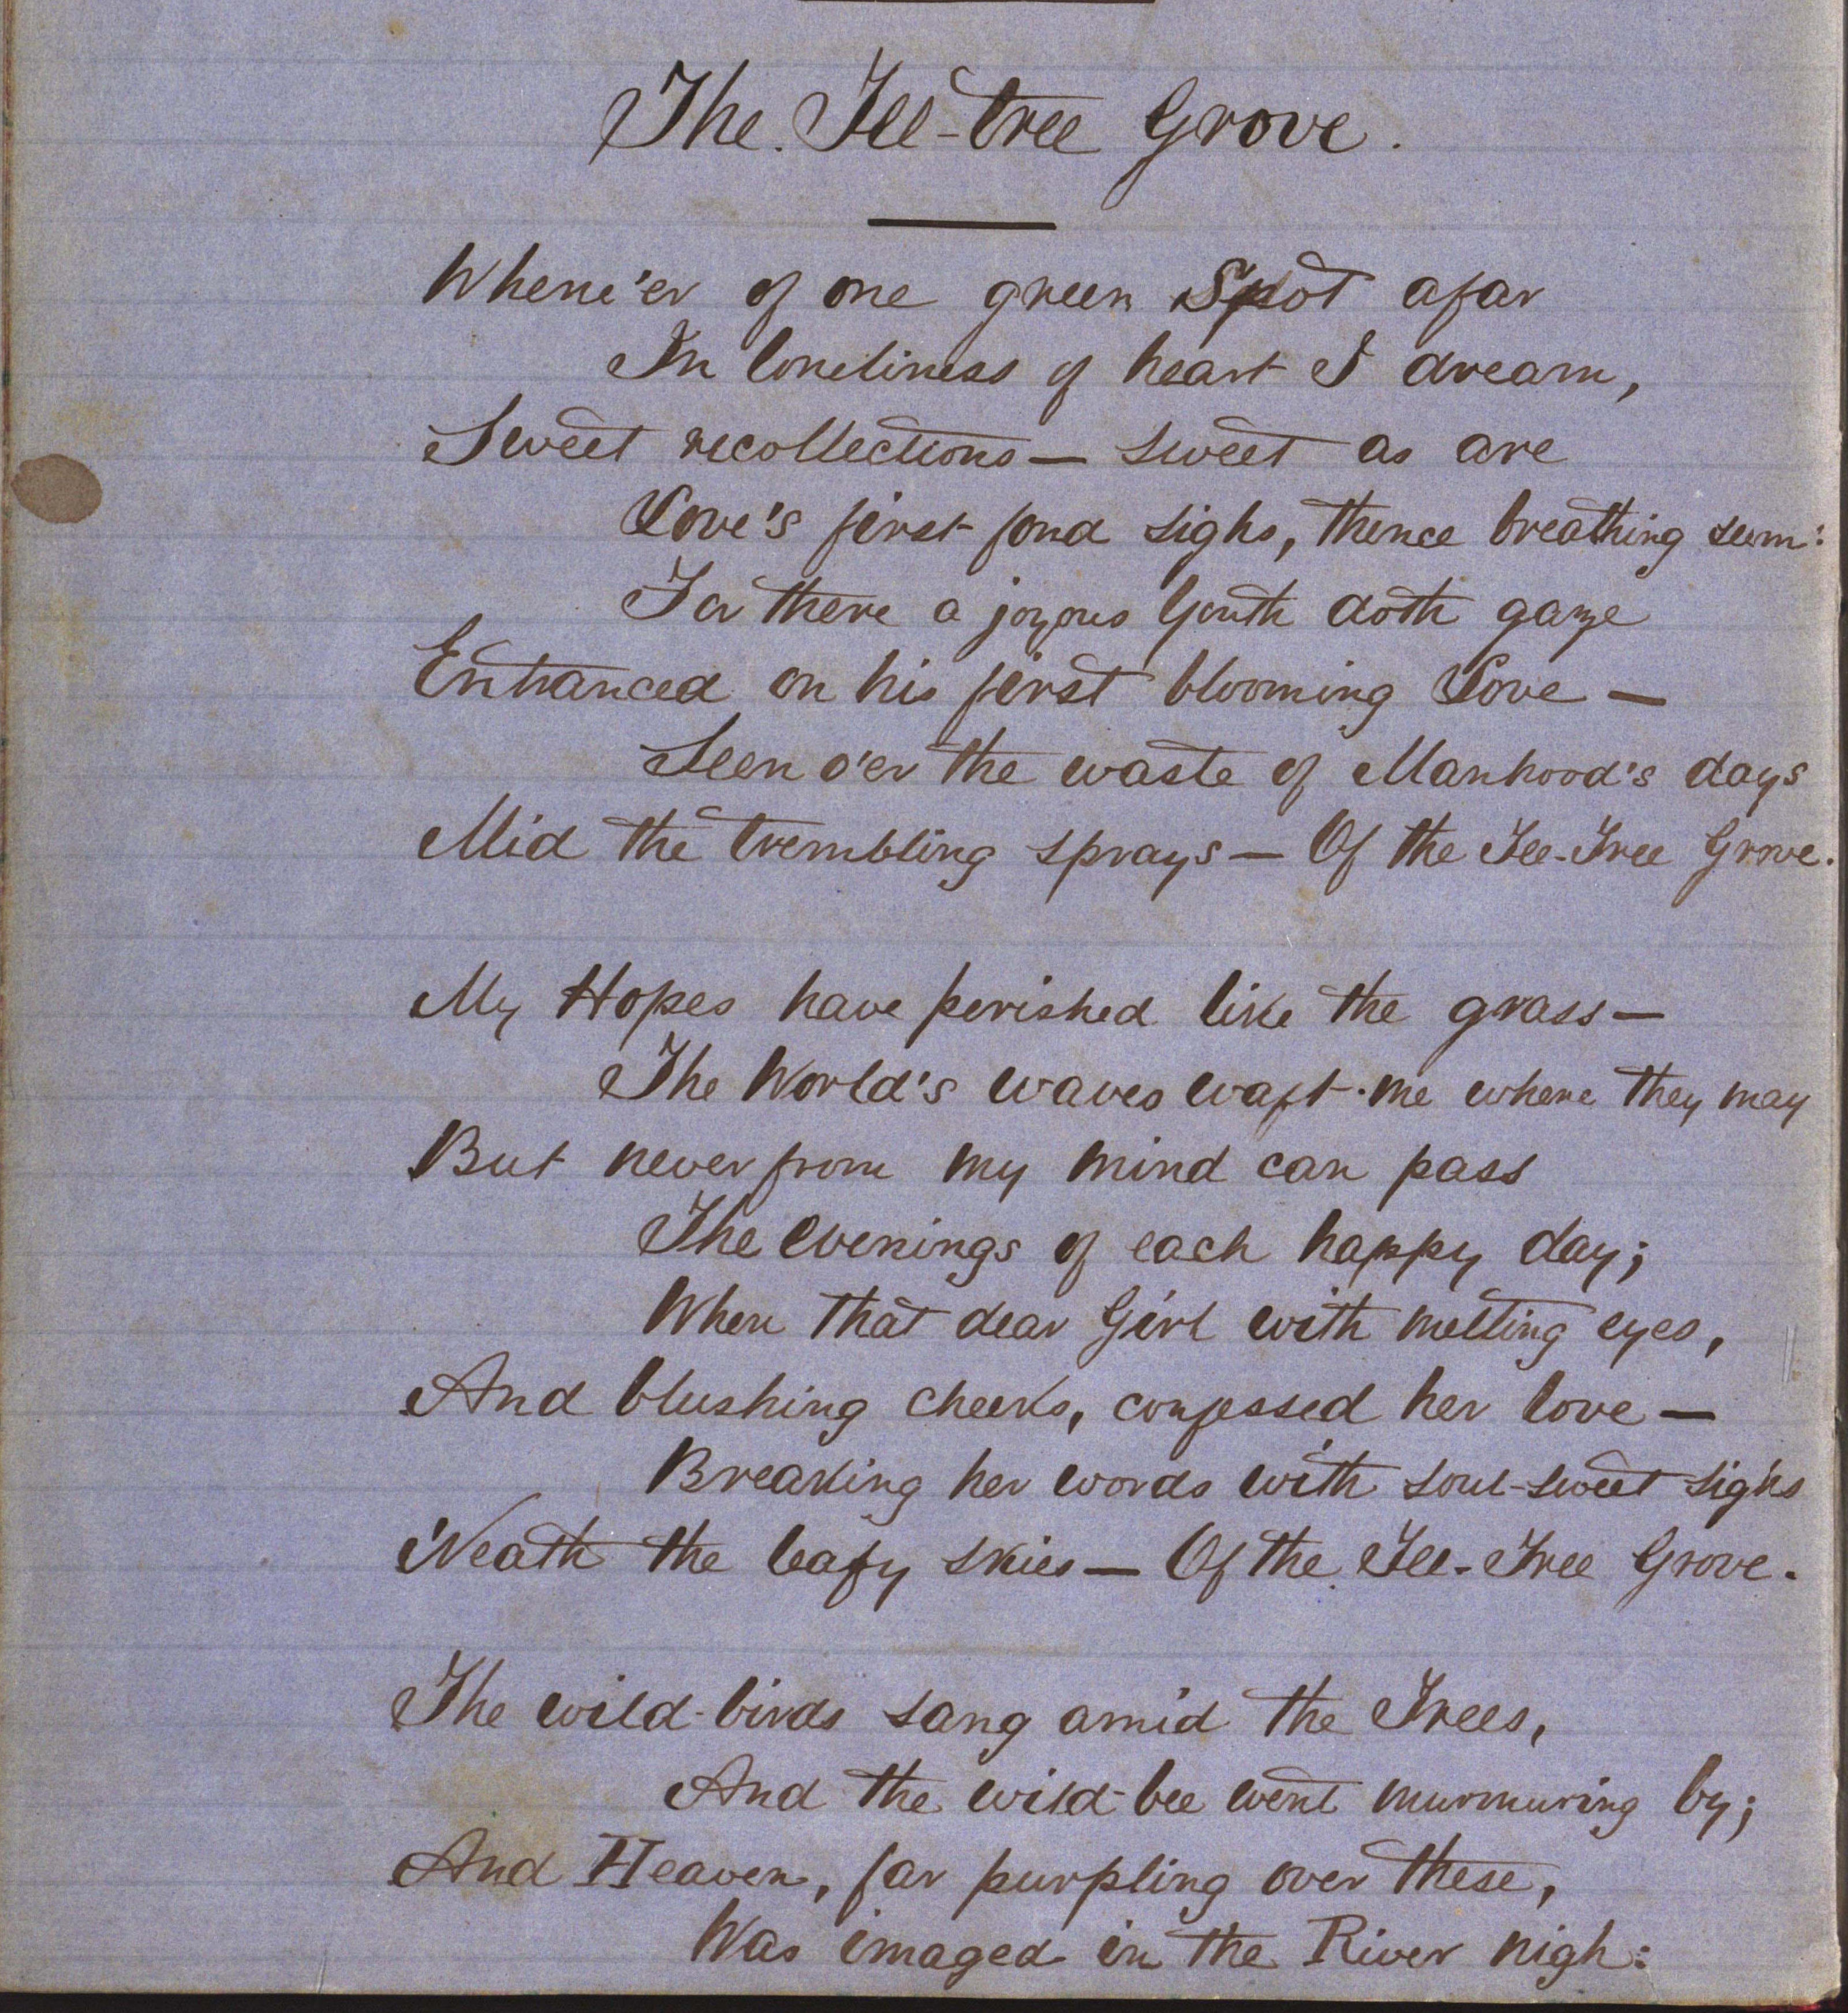 The Tee-tree Grove.
Whene'er of one green Spot afar
In loneliness of heart I dream,
Sweet recollections — sweet as are
Love's first fond sighs, thence breathing seem:
For there a joyous Youth doth gaze
Entranced on his first blooming Love —
Seen o'er the waste of Manhood's days
Mid the trembling sprays — Of the Tee-Tree Grove.
My Hopes have perished like the grass —
The World's waves waft me where they may
But never from my mind can pass
The Evenings of each happy day;
When that dear Girl with melting eyes,
And blushing cheeks, confessed her love —
Breaking her words with soul-sweet sighs
'Neath the leafy skies — Of the Tee-Tree Grove.
The wild-birds sang amid the Trees,
And the wild-bee went murmuring by;
And Heaven, far purpling over these,
Was imaged in the River nigh: